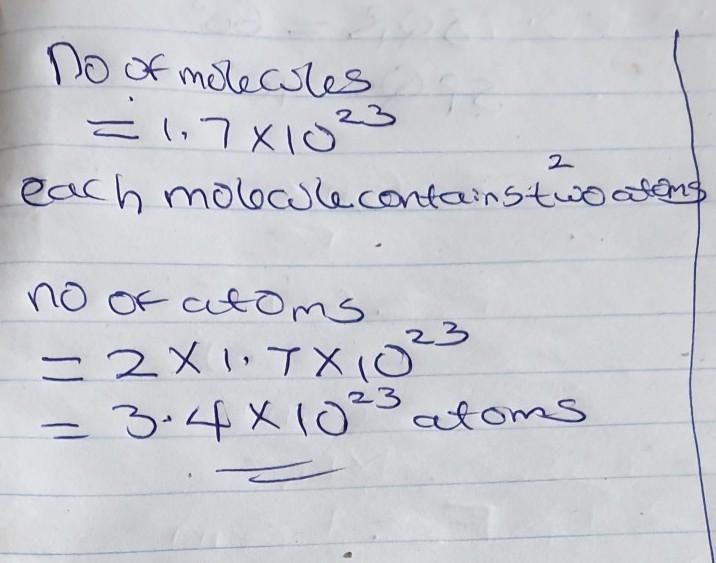 No of molecules
= 1.7 × 10²³
2
each molecule contains two atoms
no of atoms
= 2 × 1.7 × 10²³
= 3.4 × 10²³ atoms